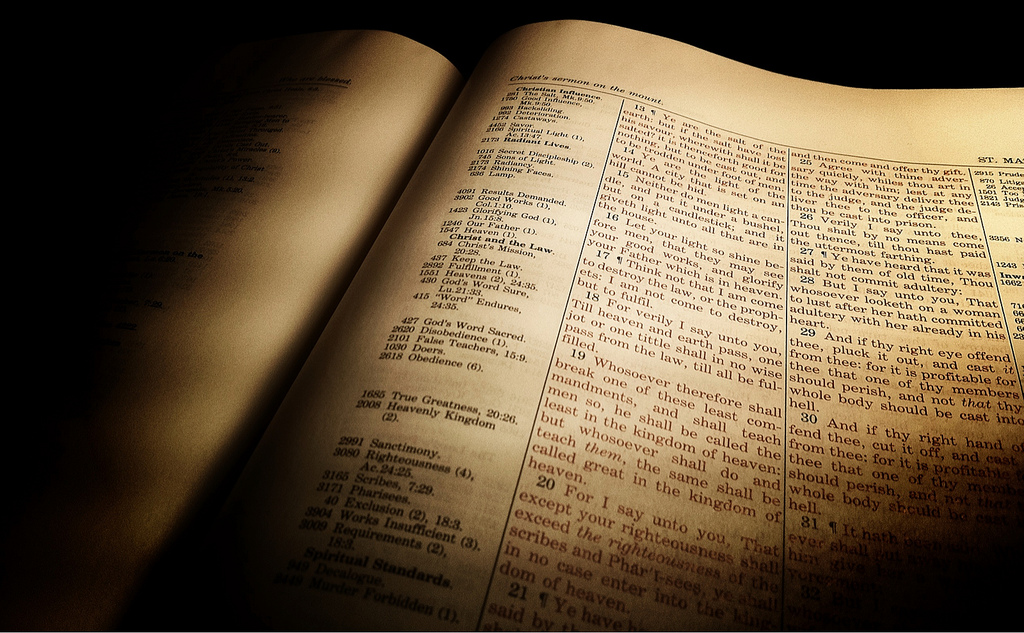 Christ's sermon on the mount.
ST. MA
Christian Influence.
291 The Salt, Mk.9:50.
1790 Good Influence,
Mk.9:50.
993 Backsliding.
992 Deterioration.
1274 Castaways.
4452 Savor.
2166 Spiritual Light (1),
Ac.13:47.
2173 Radiant Lives.
1016 Secret Discipleship (2).
745 Sons of Light.
2175 Radiancy.
2174 Shining Faces.
636 Lamp.
4091 Results Demanded.
3902 Good Works (1),
Col.1:10.
1423 Glorifying God (1),
Jn.15:8.
1246 Our Father (1).
1547 Heaven (1).
Christ and the Law.
684 Christ's Mission,
20:28.
437 Keep the Law.
2892 Fulfillment (1).
1551 Heavens (2), 24:35.
430 God's Word Sure,
Lu.21:33.
415 "Word" Endures,
24:35.
427 God's Word Sacred.
2620 Disobedience (1).
2101 False Teachers, 15:9.
1030 Doers.
2618 Obedience (6).
1685 True Greatness, 20:26.
2008 Heavenly Kingdom
(2).
2991 Sanctimony.
3080 Righteousness (4),
Ac.24:25.
3165 Scribes, 7:29.
3171 Pharisees.
40 Exclusion (2), 18:3.
3904 Works Insufficient (3).
3009 Requirements (2),
18:3.
Spiritual Standards.
949 Decalogue.
2449 Murder Forbidden (1).
13 ¶ Ye are the salt of the
earth: but if the salt have lost
his savour, wherewith shall it be
salted? it is thenceforth good for
nothing, but to be cast out, and
to be trodden under foot of men.
14 Ye are the light of the
world. A city that is set on an
hill cannot be hid.
15 Neither do men light a can-
dle, and put it under a bushel,
but on a candlestick; and it
giveth light unto all that are in
the house.
16 Let your light so shine be-
fore men, that they may see
your good works, and glorify
your Father which is in heaven.
17 ¶ Think not that I am come
to destroy the law, or the proph-
ets: I am not come to destroy,
but to fulfil.
18 For verily I say unto you,
Till heaven and earth pass, one
jot or one tittle shall in no wise
pass from the law, till all be ful-
filled.
19 Whosoever therefore shall
break one of these least com-
mandments, and shall teach
men so, he shall be called the
least in the kingdom of heaven:
but whosoever shall do and
teach them, the same shall be
called great in the kingdom of
heaven.
20 For I say unto you, That
except your righteousness shall
exceed the righteousness of the
scribes and Phar'i-sees, ye shall
in no case enter into the king-
dom of heaven.
21 ¶ Ye have h
said by th
and then come and offer thy gift.
25 Agree with thine adver-
sary quickly, whiles thou art in
the way with him; lest at any
time the adversary deliver thee
to the judge, and the judge de-
liver thee to the officer, and
thou be cast into prison.
26 Verily I say unto thee,
Thou shalt by no means come
out thence, till thou hast paid
the uttermost farthing.
27 ¶ Ye have heard that it was
said by them of old time, Thou
shalt not commit adultery:
28 But I say unto you, That
whosoever looketh on a woman
to lust after her hath committed
adultery with her already in his
heart.
29 And if thy right eye offend
thee, pluck it out, and cast it
from thee: for it is profitable for
thee that one of thy members
should perish, and not that thy
whole body should be cast into
hell.
30 And if thy right hand of
fend thee, cut it off, and cast
from thee: for it is profitable
thee that one of thy memb
should perish, and not that
whole body should be cast
hell.
31 ¶ It hath been
ever shall put
him give her
32
2915 Prude
870 Litig
26 Acce
1501 Too
1821 Judg
2142 Pris
3356 N
1243
Inw
1662